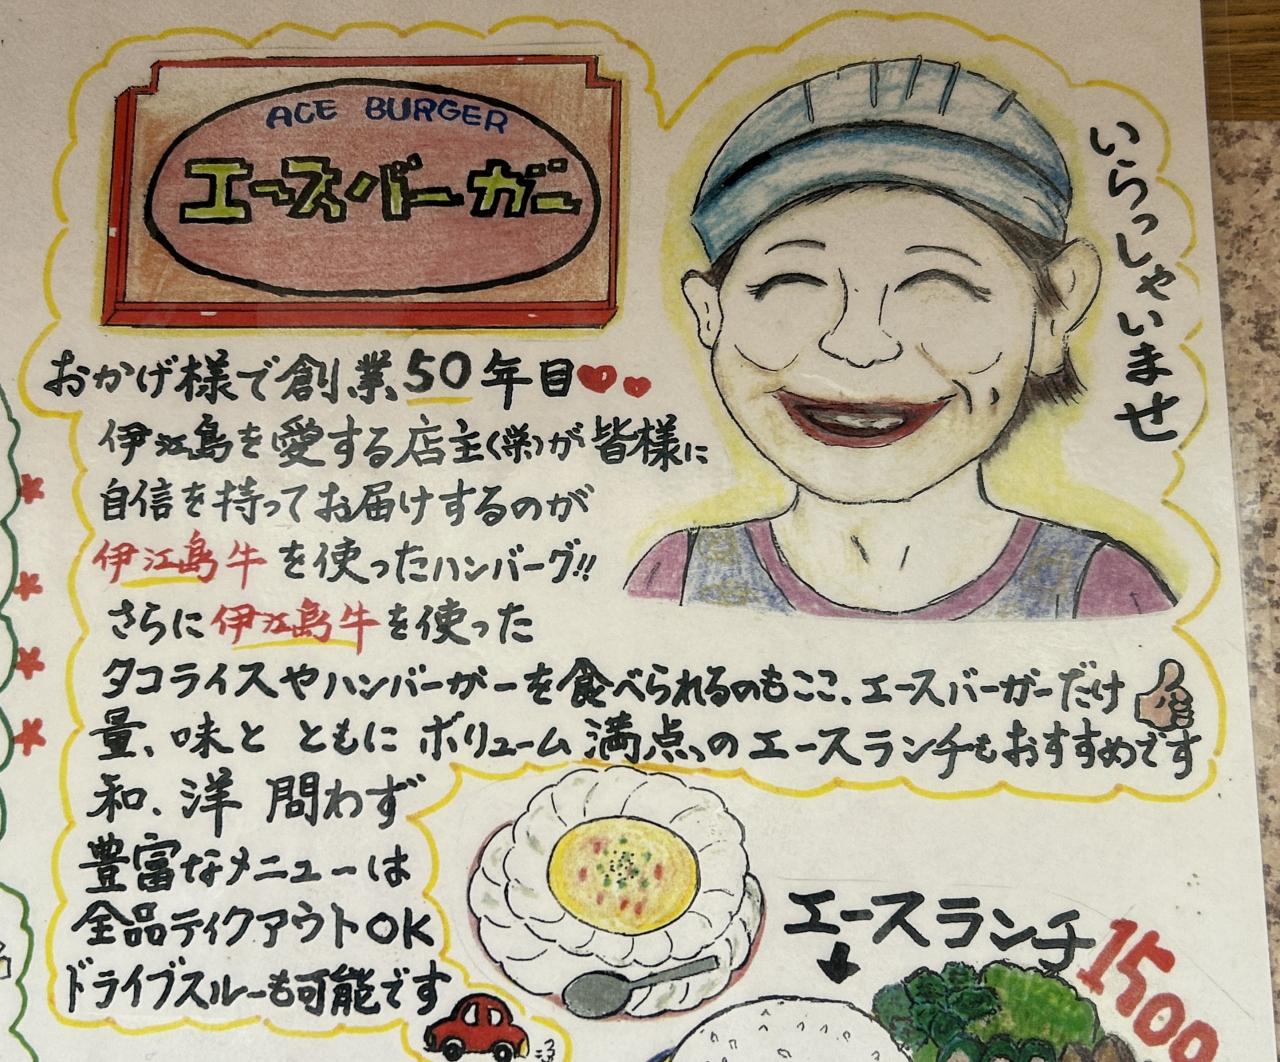 ACE BURGER
エースバーガー
いらっしゃいませ
おかげ様で創業50年目
伊江島を愛する店主(栄)が皆様に
自信を持ってお届けするのが
伊江島牛を使ったハンバーグ!!
さらに伊江島牛を使った
タコライスやハンバーガーを食べられるのもここ、エースバーガーだけ
量、味と ともに ボリューム満点っのエースランチもおすすめです
和、洋 問わず
豊富なメニューは
全品ティクアウトOK
ドライブスルーも可能です
エースランチ
1500